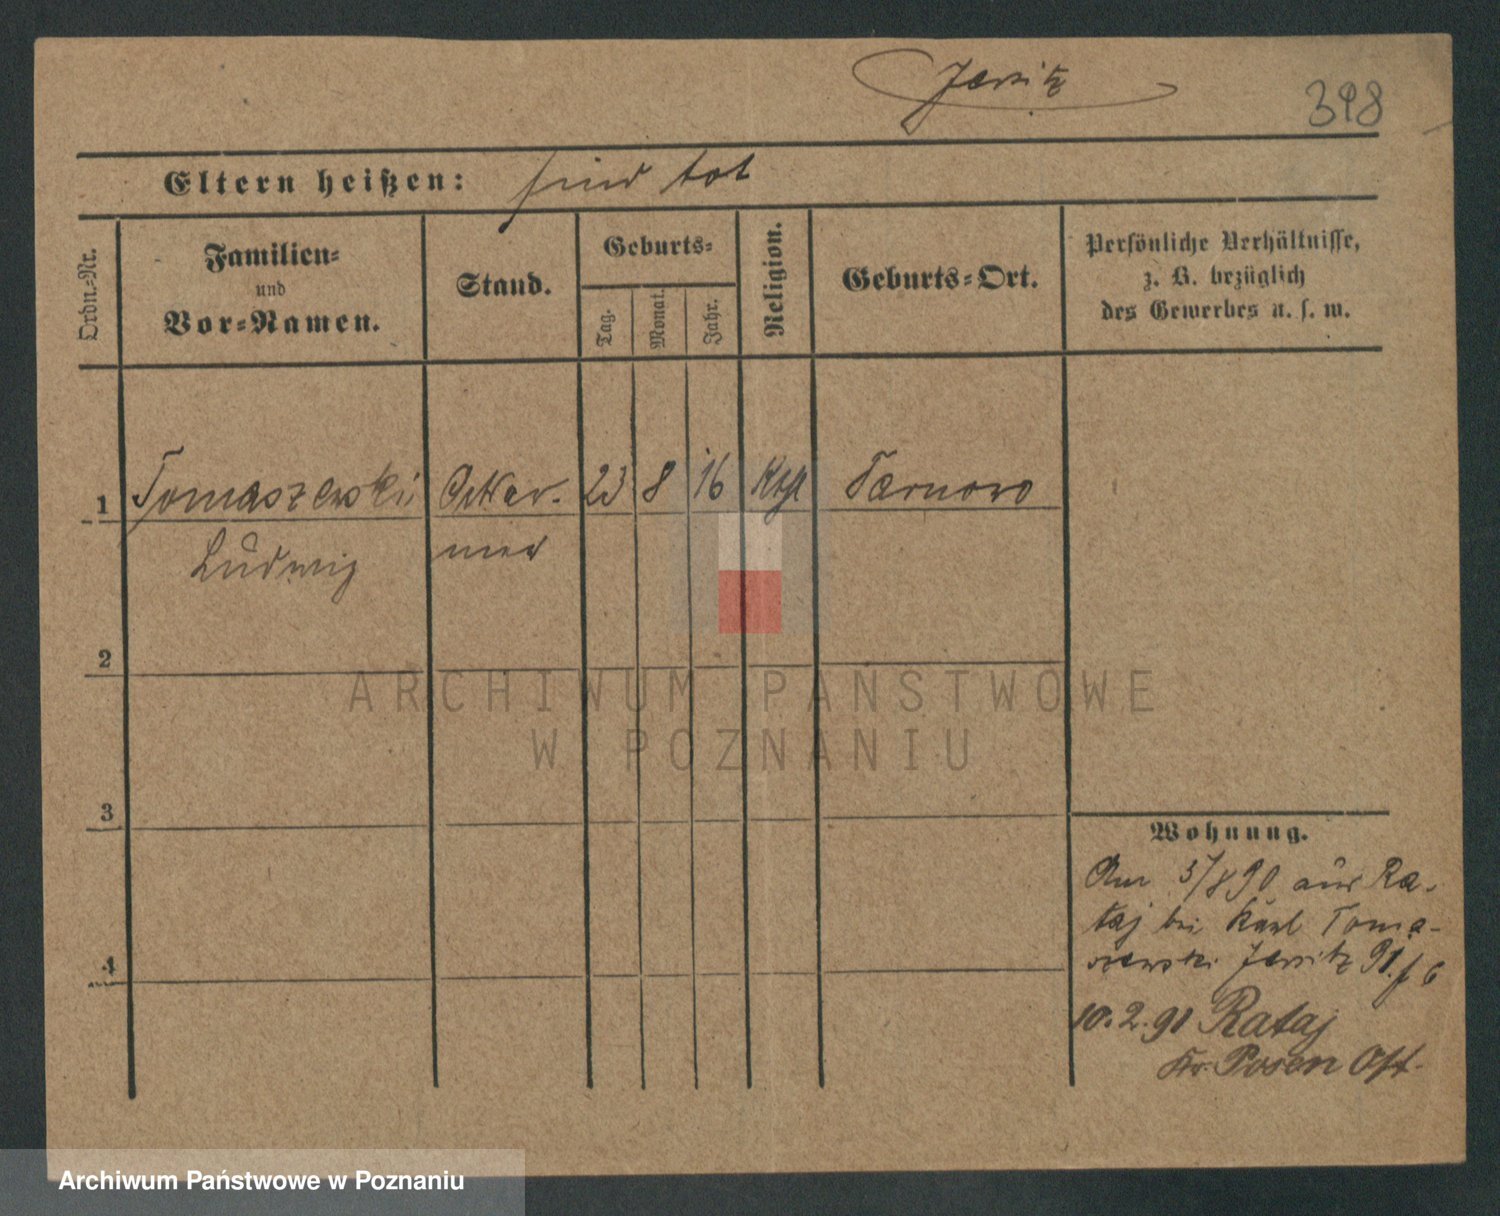 Jersitz
398
Eltern heißen: sind tot
Ordn.-Nr.
Familien-
und
Vor-Namen.
Stand.
Geburts-
Tag.
Monat.
Jahr.
Religion.
Geburts-Ort.
Persönliche Verhältnisse,
z. B. bezüglich
des Gewerbes u. s. w.
1 Tomaszewski Acker- 23 8 16 Kth Tarnowo
Ludwig
2
3
4
Wohnung.
Am 5/8 90 aus Ra-
taj bei Karl Toma-
szewski Jersitz 91.
10.2.91 Rataj
Kr. Posen Ost.
ARCHIWUM PAŃSTWOWE
W POZNANIU
Archiwum Państwowe w Poznaniu